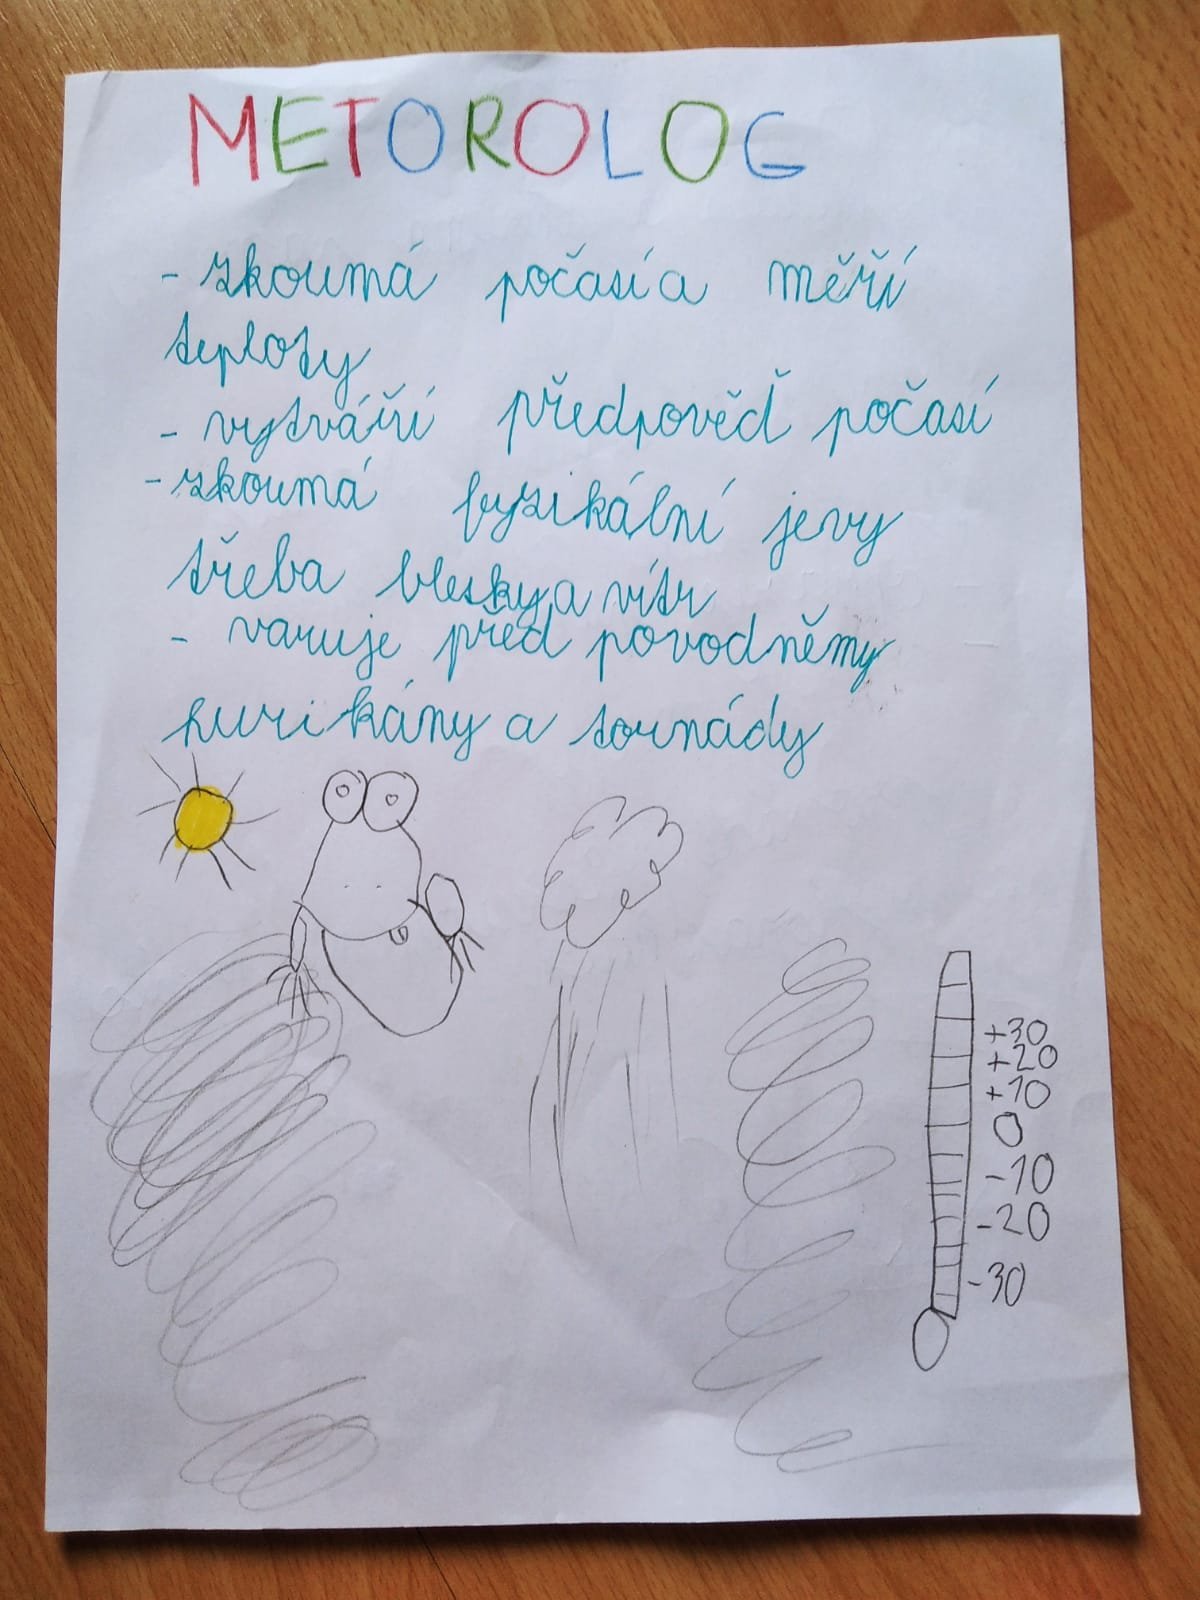 METOROLOG
- zkoumá počasí a měří
teploty
- vytváří předpověď počasí
- zkoumá fyzikální jevy
třeba blesky a vítr
- varuje před povodněmy
hurikány a tornády
+30
+20
+10
0
-10
-20
-30